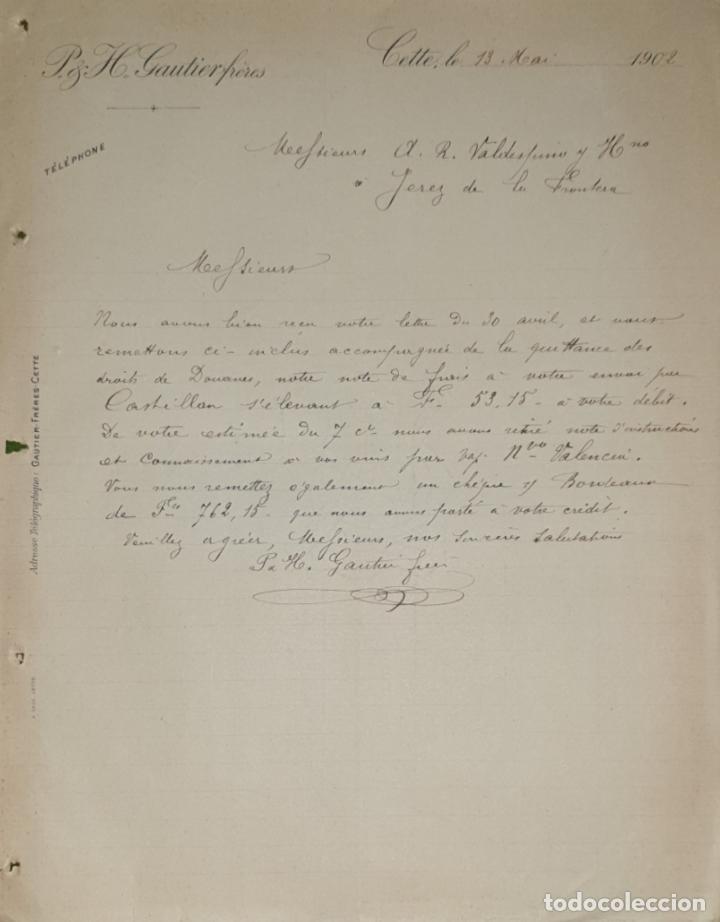 P. & H. Gautier frères
Cette, le 13 Mai 1902
TÉLÉPHONE
Messieurs A. R. Valdespino y Hno
à Jerez de la Frontera
Messieurs
Nous avons bien reçu votre lettre du 30 avril, et vous
remettons ci-inclus accompagnée de la quittance des
droits de Douanes, notre note de frais à votre envoi par
Castillan s'élevant à F. 53,15 - à votre débit.
De votre estimée du 7 ct nous avons retiré note d'instructions
et connaissement à vos vins par vap. Nvo Valencia.
Vous nous remettez également un chèque s/ Bordeaux
de Fcs 762,15 - que nous avons porté à votre crédit.
Veuillez agréer, Messieurs, nos sincères salutations
P & H. Gautier frères
Adresse Télégraphique: GAUTIER-FRÈRES-CETTE
todocoleccion